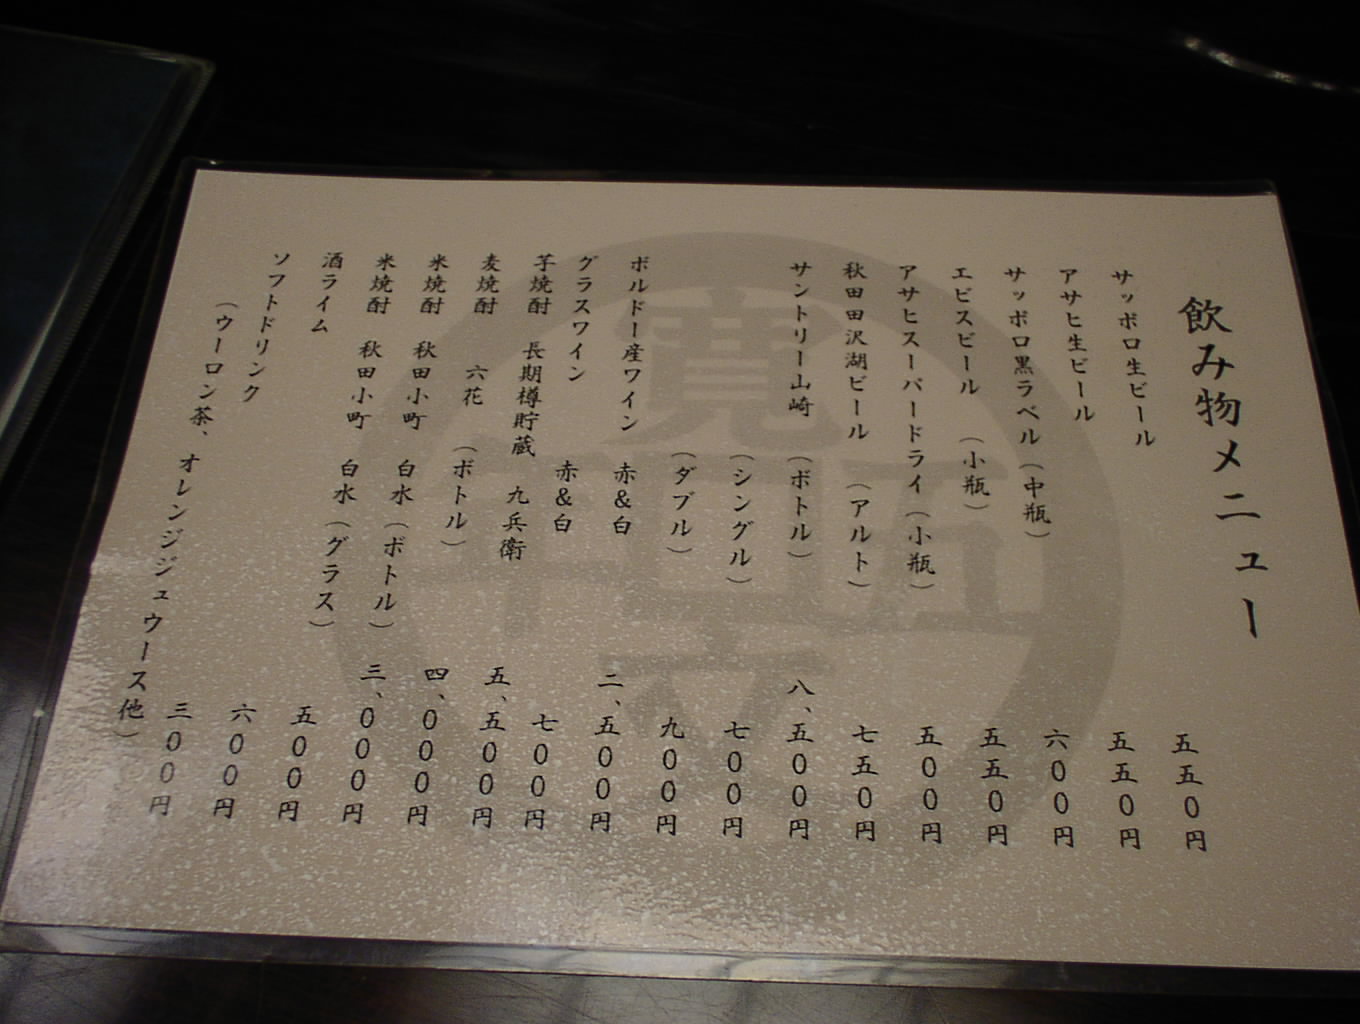 飲み物メニュー
サッポロ生ビール 五五0円
アサヒ生ビール 五五0円
サッポロ黒ラベル(中瓶) 六00円
エビスビール (小瓶) 五五0円
アサヒスーパードライ(小瓶) 五00円
秋田田沢湖ビール (アルト) 七五0円
サントリー山崎 (ボトル) 八、五00円
(シングル) 七00円
(ダブル) 九00円
ボルドー産ワイン 赤&白 二、五00円
グラスワイン 赤&白 七00円
芋焼酎 長期樽貯蔵 九兵衛 五、五00円
麦焼酎 六花 (ボトル) 四、000円
米焼酎 秋田小町 白水(ボトル) 三、000円
米焼酎 秋田小町 白水(グラス) 五00円
酒ライム 六00円
ソフトドリンク 三00円
(ウーロン茶、オレンジジュウース他)